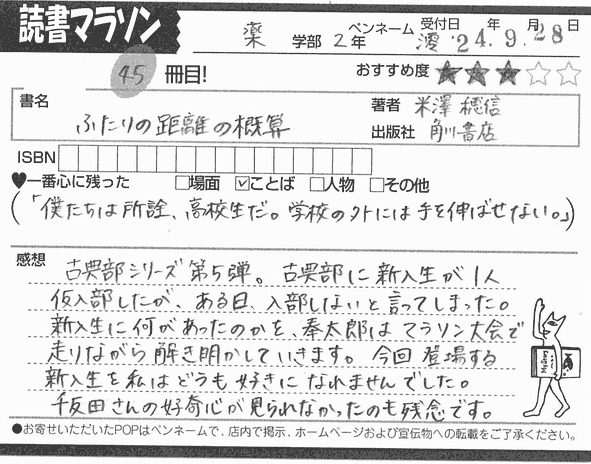 読書マラソン
薬 学部 2年 ペンネーム 受付日 '24年 9月 28日
45 冊目! おすすめ度 ★★★☆☆
書名 ふたりの距離の概算
著者 米澤 穂信
出版社 角川書店
ISBN
♥一番心に残った □場面 ☑ことば □人物 □その他
(「僕たちは所詮、高校生だ。学校の外には手を伸ばせない。」)
感想
古典部シリーズ第5弾。古典部に新入生が1人
仮入部したが、ある日、入部しないと言ってしまった。
新入生に何があったのかを、奉太郎はマラソン大会で
走りながら解き明かしていきます。今回登場する
新入生を私はどうも好きになれませんでした。
千反田さんの好奇心が見られなかったのも残念です。
●お寄せいただいたPOPはペンネームで、店内で掲示、ホームページおよび宣伝物への転載をご了承ください。